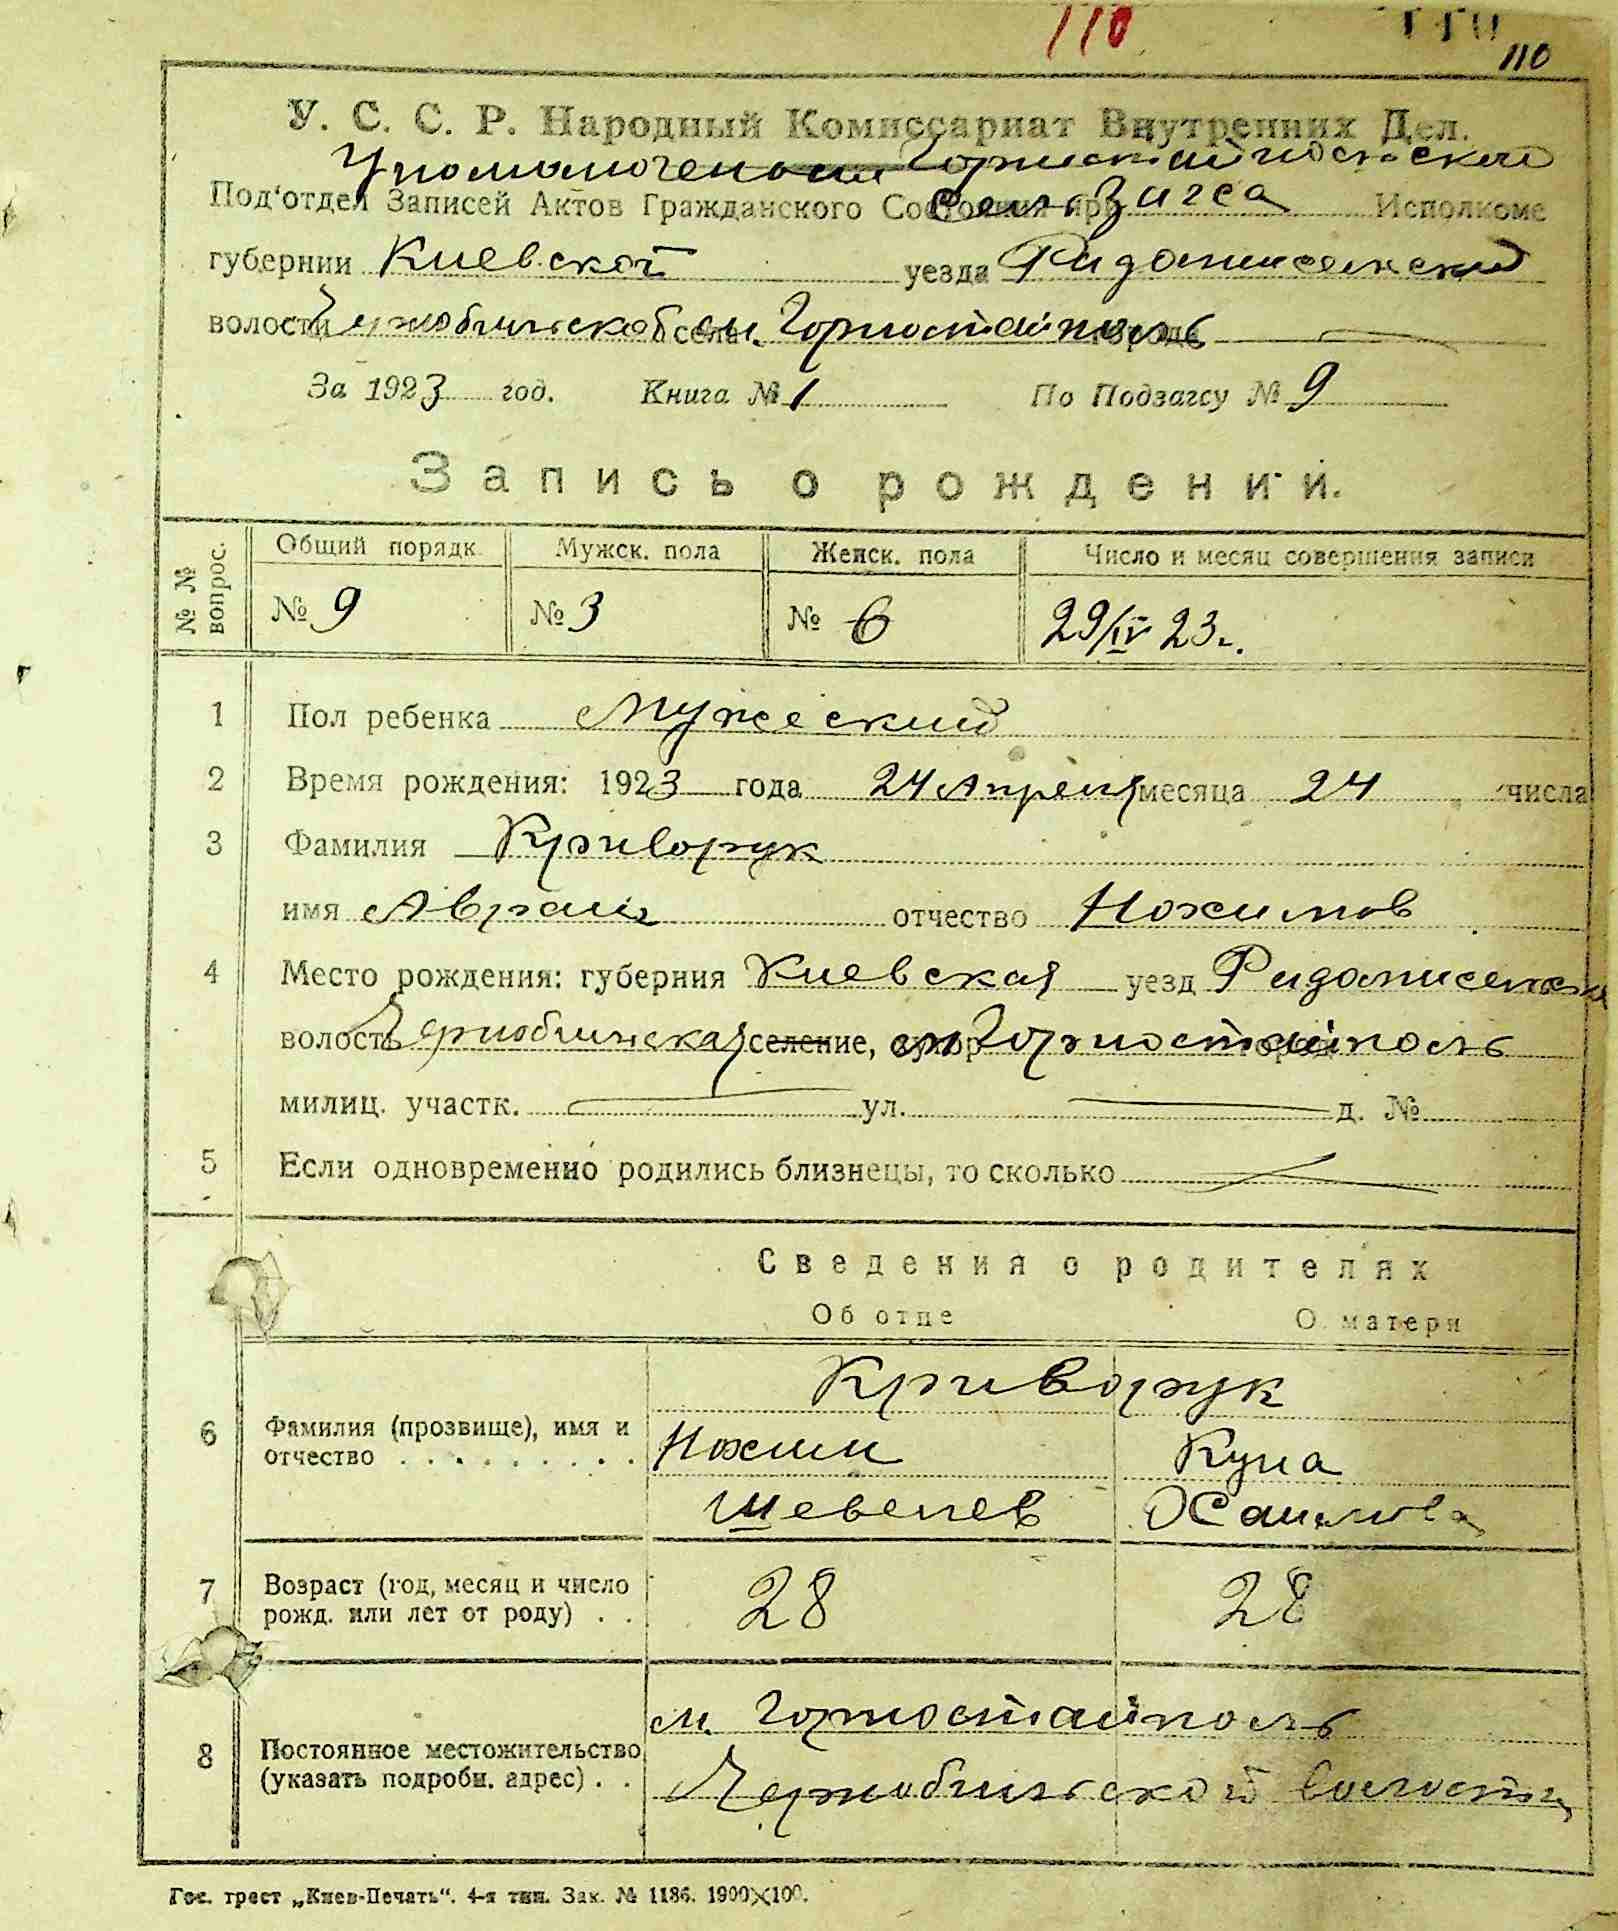 110
110
110
У. С. С. Р. Народный Комиссариат Внутренних Дел.
Упомоноченный Горностайпольской
Под'отдел Записей Актов Гражданского Состояния при Сель Загса Исполкоме
губернии Киевской уезда Радомисельский
волости Чернобыльской села м. Горностайполь города
За 1923 год. Книга № 1 По Подзагсу № 9
Запись о рождении.
№ № вопрос. Общий порядк. Мужск. пола Женск. пола Число и месяц совершения записи
№ 9 № 3 № 6 29/IV 23 г.
1 Пол ребенка Мужеский
2 Время рождения: 1923 года 24 Апреля месяца 24 числа
3 Фамилия Криворук
имя Аврам отчество Нохимов
4 Место рождения: губерния Киевская уезд Радомисельск
волость Чернобыльская селение, м. Горностайполь
милиц. участк. ул. д. №
5 Если одновременно родились близнецы, то сколько
Сведения о родителях
Об отце О матери
Криворук
6 Фамилия (прозвище), имя и отчество . . . . . . . . . Нохим Куна
Шевелев
7 Возраст (год, месяц и число рожд. или лет от роду) . . 28 28
м. Горностайполь
8 Постоянное местожительство (указать подробн. адрес) . . Чернобыльской волости
Гос. трест „Киев-Печать“. 4-я тип. Зак. № 1186. 1900×100.